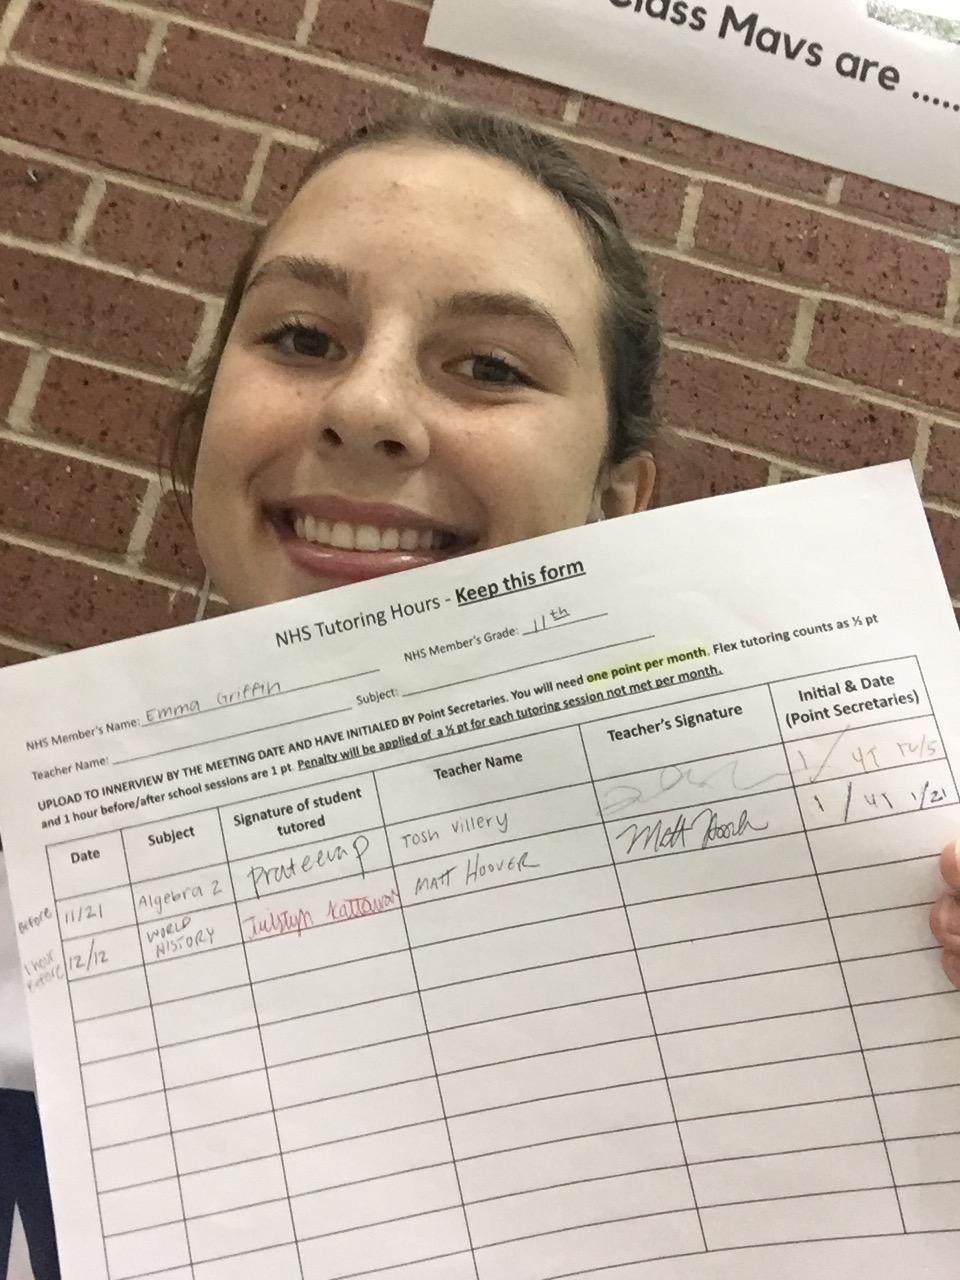 class Mavs are .....
NHS Tutoring Hours - Keep this form
NHS Member's Name: Emma Griffin NHS Member's Grade: 11th
Teacher Name: Subject:
UPLOAD TO INNERVIEW BY THE MEETING DATE AND HAVE INITIALED BY Point Secretaries. You will need one point per month. Flex tutoring counts as ½ pt
and 1 hour before/after school sessions are 1 pt. Penalty will be applied of a ½ pt for each tutoring session not met per month.
Date Subject Signature of student tutored Teacher Name Teacher's Signature Initial & Date (Point Secretaries)
Before 11/21 Algebra 2 Prateek P Tosh Villery 1 / 12/5
1 hour before 12/12 WORLD HISTORY MATT HOOVER Matt Hoover 1 / 1/21